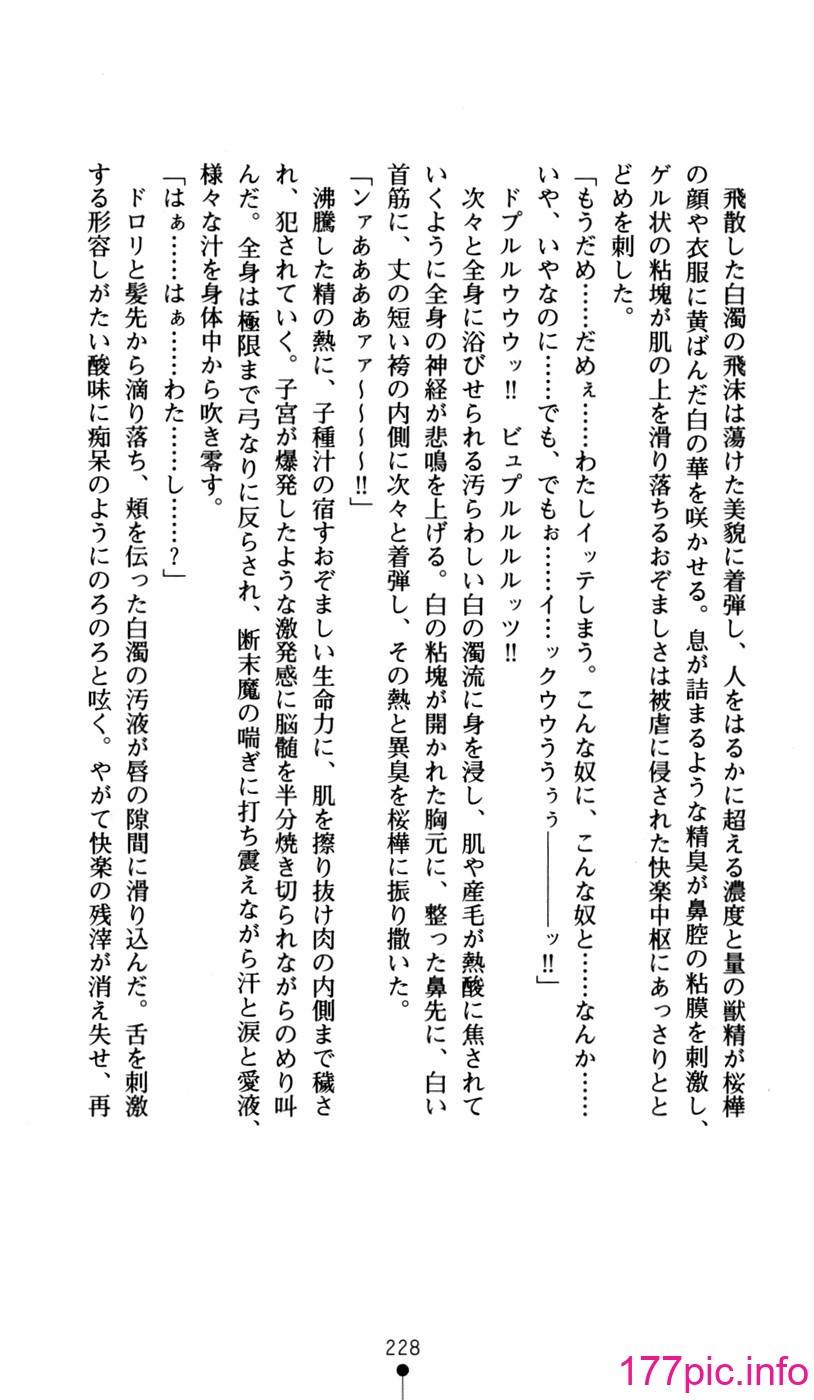 飛散した白濁の飛沫は蕩けた美貌に着弾し、人をはるかに超える濃度と量の獣精が桜樺
の顔や衣服に黄ばんだ白の華を咲かせる。息が詰まるような精臭が鼻腔の粘膜を刺激し、
ゲル状の粘塊が肌の上を滑り落ちるおぞましさは被虐に侵された快楽中枢にあっさりとと
どめを刺した。
「もうだめ……だめぇ……わたしイッテしまう。こんな奴に、こんな奴と……なんか……
いや、いやなのに……でも、でもぉ……イ…ックウウううぅぅ――――ッ!!」
ドプルルウウウッ!! ビュプルルルルッツ!!
次々と全身に浴びせられる汚らわしい白の濁流に身を浸し、肌や産毛が熱酸に焦されて
いくように全身の神経が悲鳴を上げる。白の粘塊が開かれた胸元に、整った鼻先に、白い
首筋に、丈の短い袴の内側に次々と着弾し、その熱と異臭を桜樺に振り撒いた。
「ンァああああァァ～～～～!!」
沸騰した精の熱に、子種汁の宿すおぞましい生命力に、肌を擦り抜け肉の内側まで穢さ
れ、犯されていく。子宮が爆発したような激発感に脳髄を半分焼き切られながらのめり叫
んだ。全身は極限まで弓なりに反らされ、断末魔の喘ぎに打ち震えながら汗と涙と愛液、
様々な汁を身体中から吹き零す。
「はぁ……はぁ……わた……し……?」
ドロリと髪先から滴り落ち、頬を伝った白濁の汚液が唇の隙間に滑り込んだ。舌を刺激
する形容しがたい酸味に痴呆のようにのろのろと呟く。やがて快楽の残滓が消え失せ、再
228
177pic.info